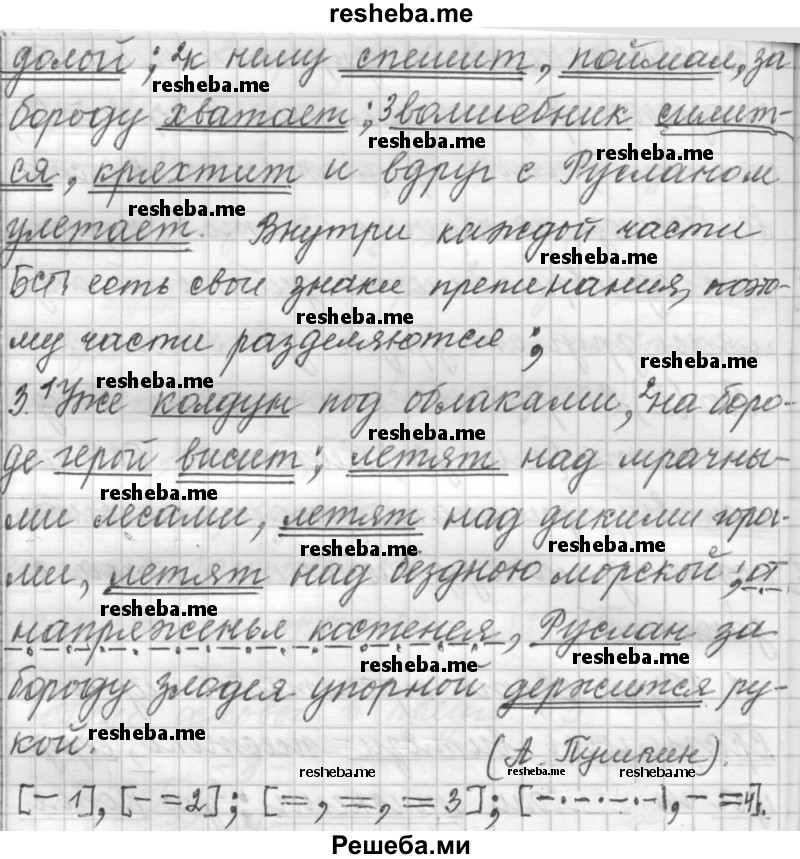 resheba.me
долой; ²к нему спешит, поймал, за
resheba.me
бороду хватает; 3волшебник силит-
resheba.me
resheba.me
ся, кряхтит и вдруг с Русланом
resheba.me
улетает. Внутри каждой части
resheba.me
БСП есть свои знаки препинания, поэто-
resheba.me
му части разделяются ;
resheba.me
3. ¹Уже колдун под облаками, ²на боро-
resheba.me
resheba.me
де герой висит; летят над мрачны-
resheba.me
ми лесами, летят над дикими гора-
resheba.me
resheba.me
ми, летят над бездною морской; от
resheba.me
напряженья костенея, Руслан за
resheba.me
resheba.me
бороду злодея упорной держится ру-
resheba.me
кой.
(А. Пушкин).
resheba.me
resheba.me
resheba.me
[– 1], [– = 2]; [=, =, = 3]; [–·–·–·–|, – = 4].
Решеба.ми